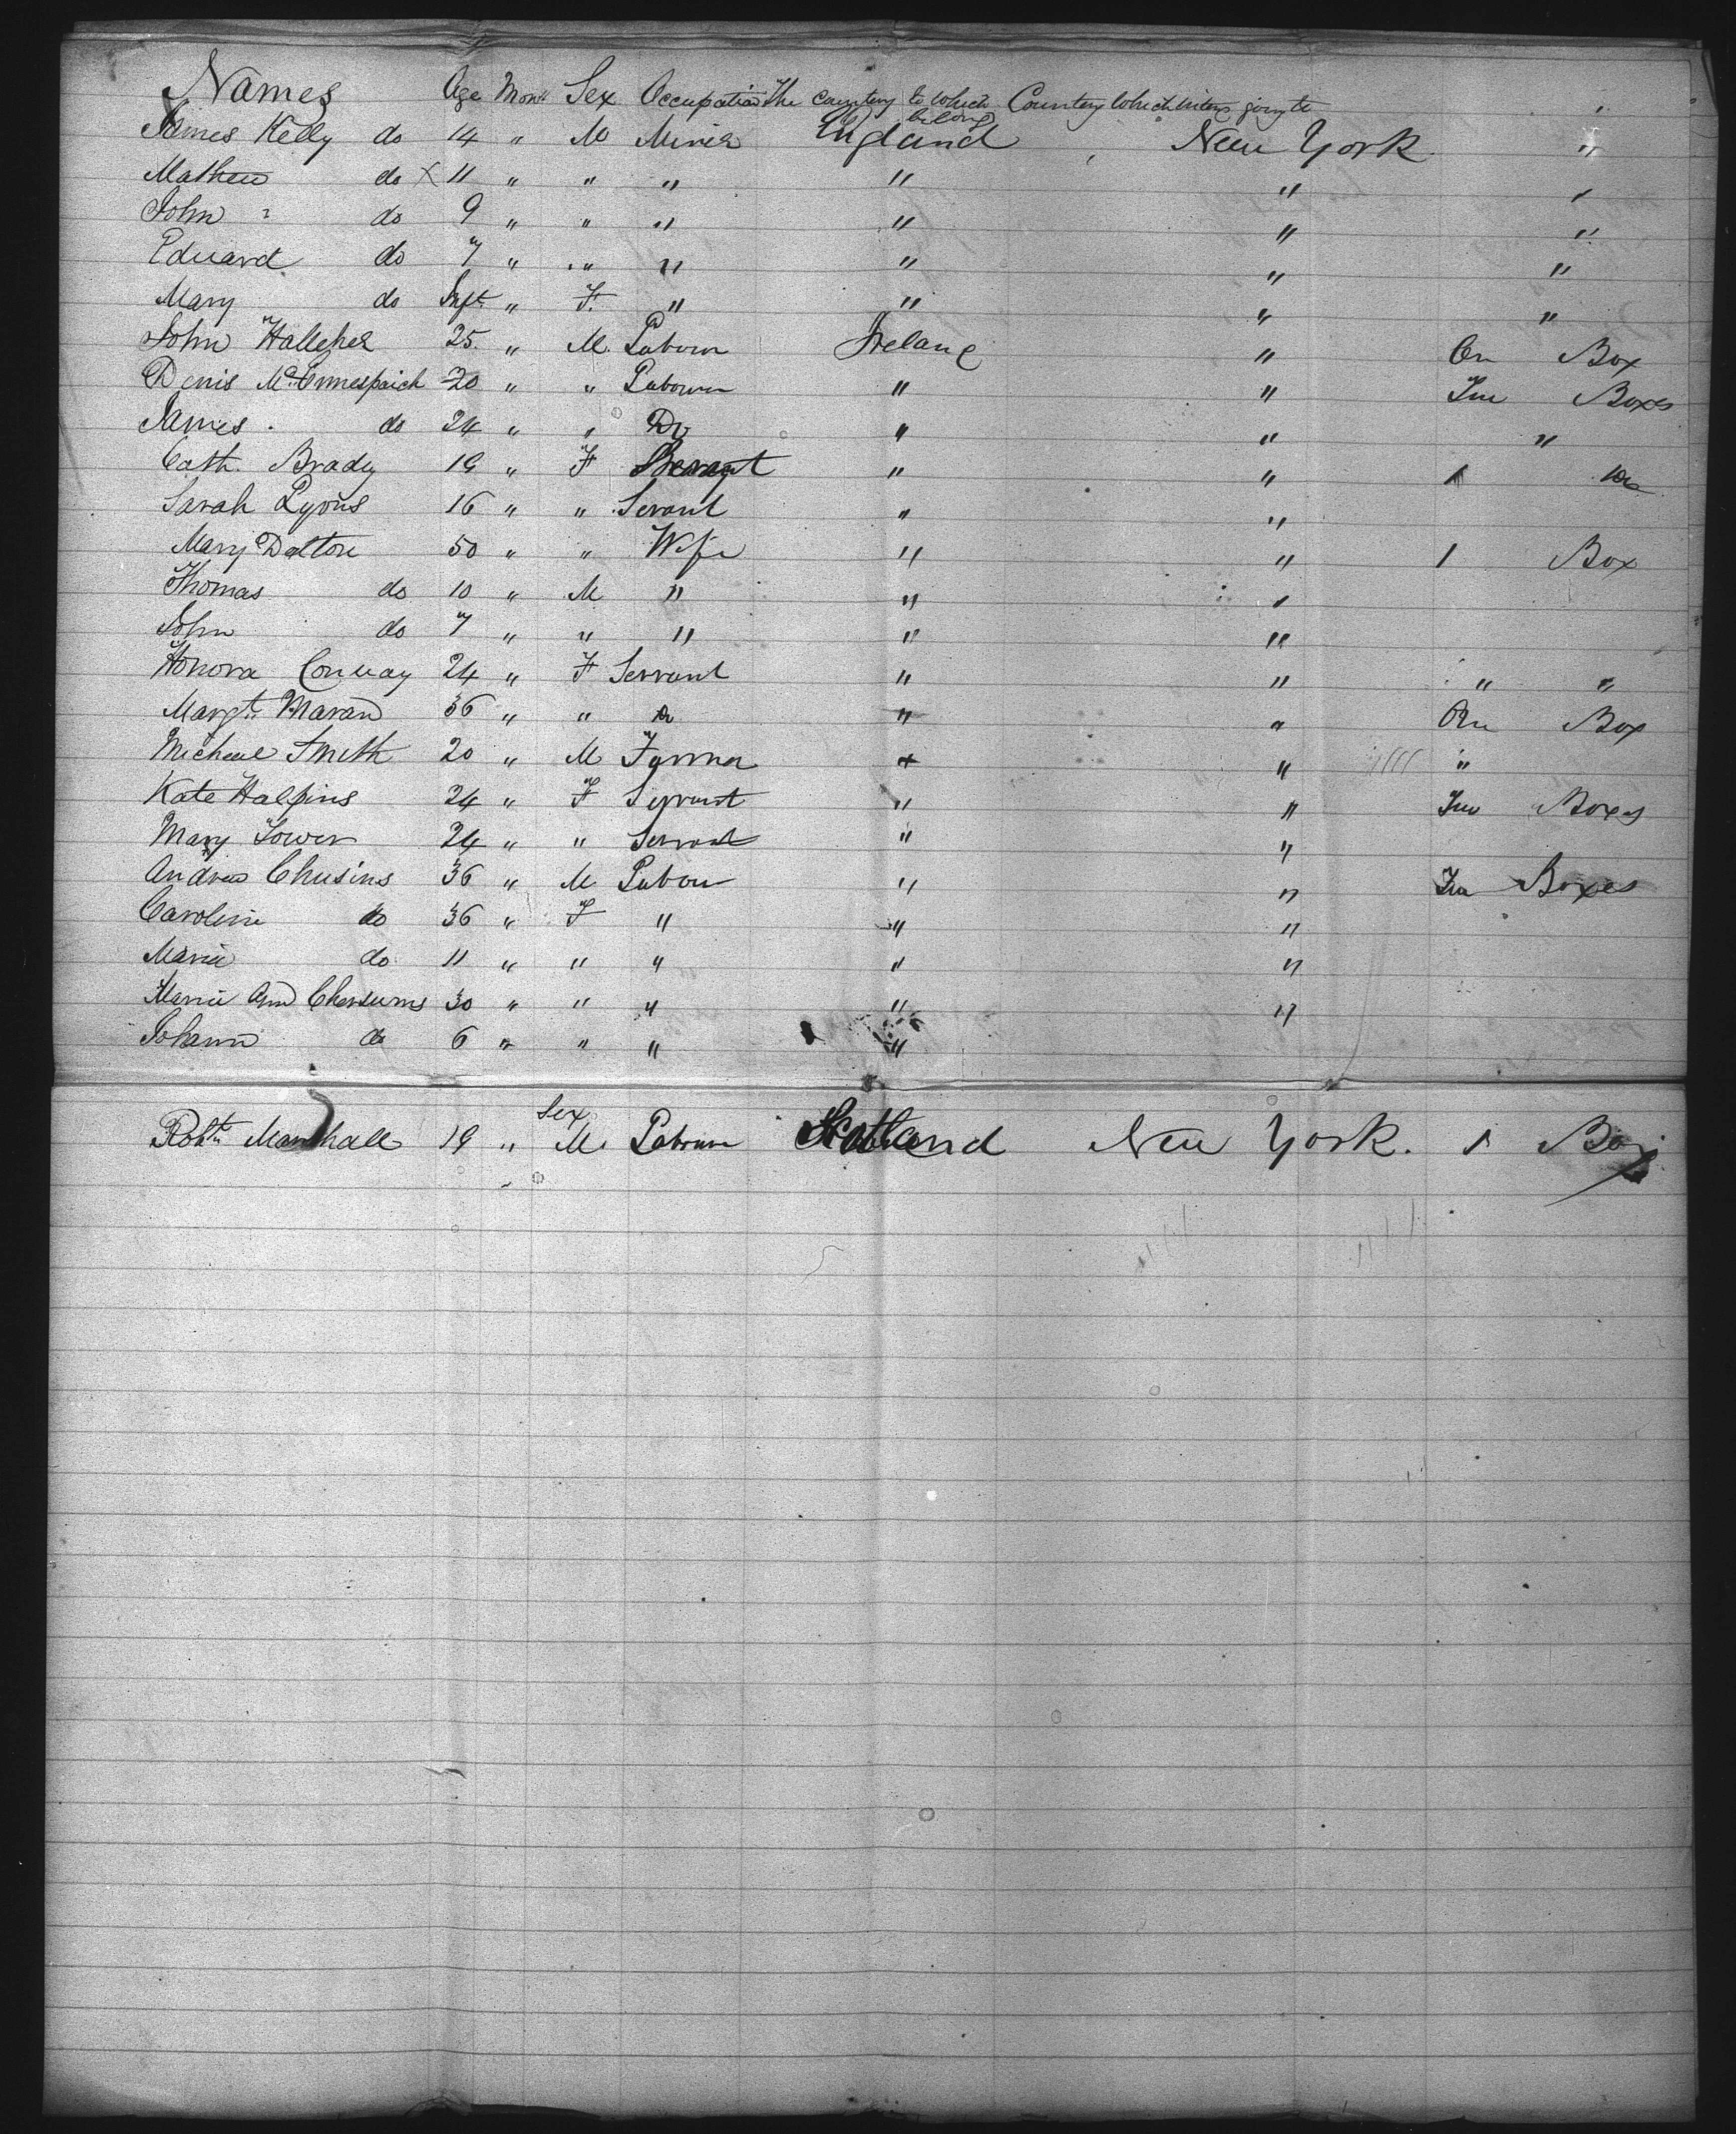 Names Age Mon Sex Occupation The country to which belong Country which going to
James Kelly do 14 " M Miner England New York "
Mathew do X 11 " " " " " "
John " do 9 " " " " " "
Edward do 7 " " " " " "
Mary do Inft " F. " " " "
John 25. " M. Labour Ireland " On Box
Denis 20 " " Labour " " Boxes
James do 24 " " Do " " "
Cath. Brady 19 " F Servant " " 1 do
Sarah Lyons 16 " " Servant " "
Mary Dalton 50 " " Wife " " 1 Box
Thomas do 10 " M " " "
John do 7 " " " " "
Honora Conway 24 " F Servant " " " "
Margt. Maran 36 " " do " " On Box
Micheal Smith 20 " M Farmer " " "
Kate Halpins 24 " F Servant " " Boxes
Mary Tower 24 " " Servant " "
Andrew Chusins 36 " M Labour " " Boxes
Caroline do 36 " F " " "
Marie do 11 " " " " "
Marie Ann 30 " " " " "
Johann do 6 " " " "
Sex
Robt. Marshall 19 " M. Labour Scotland New York. 1 Box